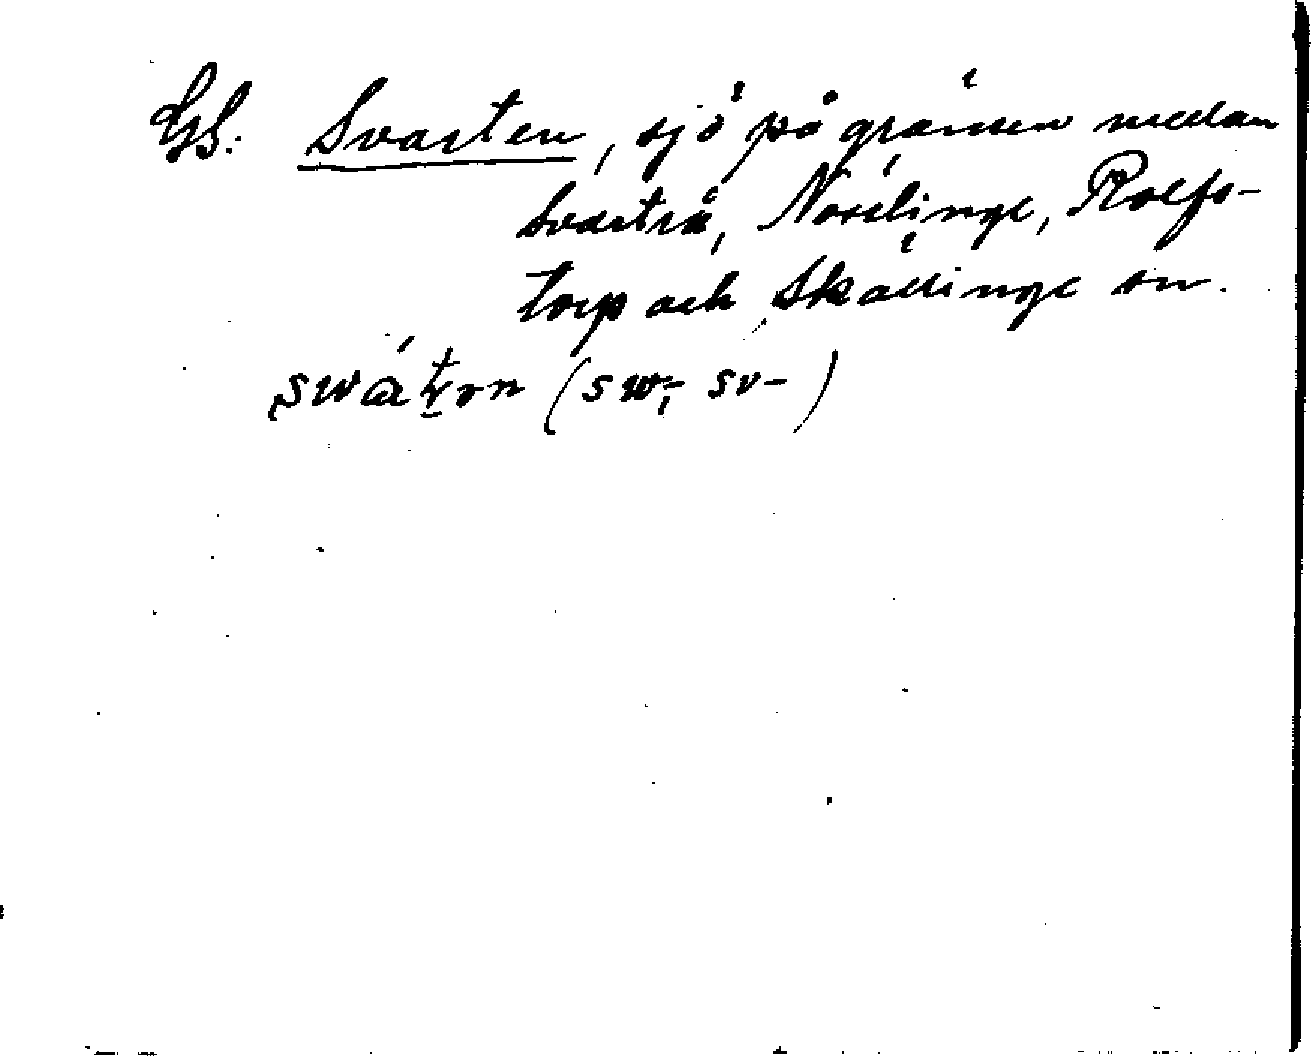 Gs. Svarten, sjö på gränsen medan
Svartrå, Nösslinge, Rolfs-
torp och Skällinge sn.
swàtɤn (sw-, sv-)